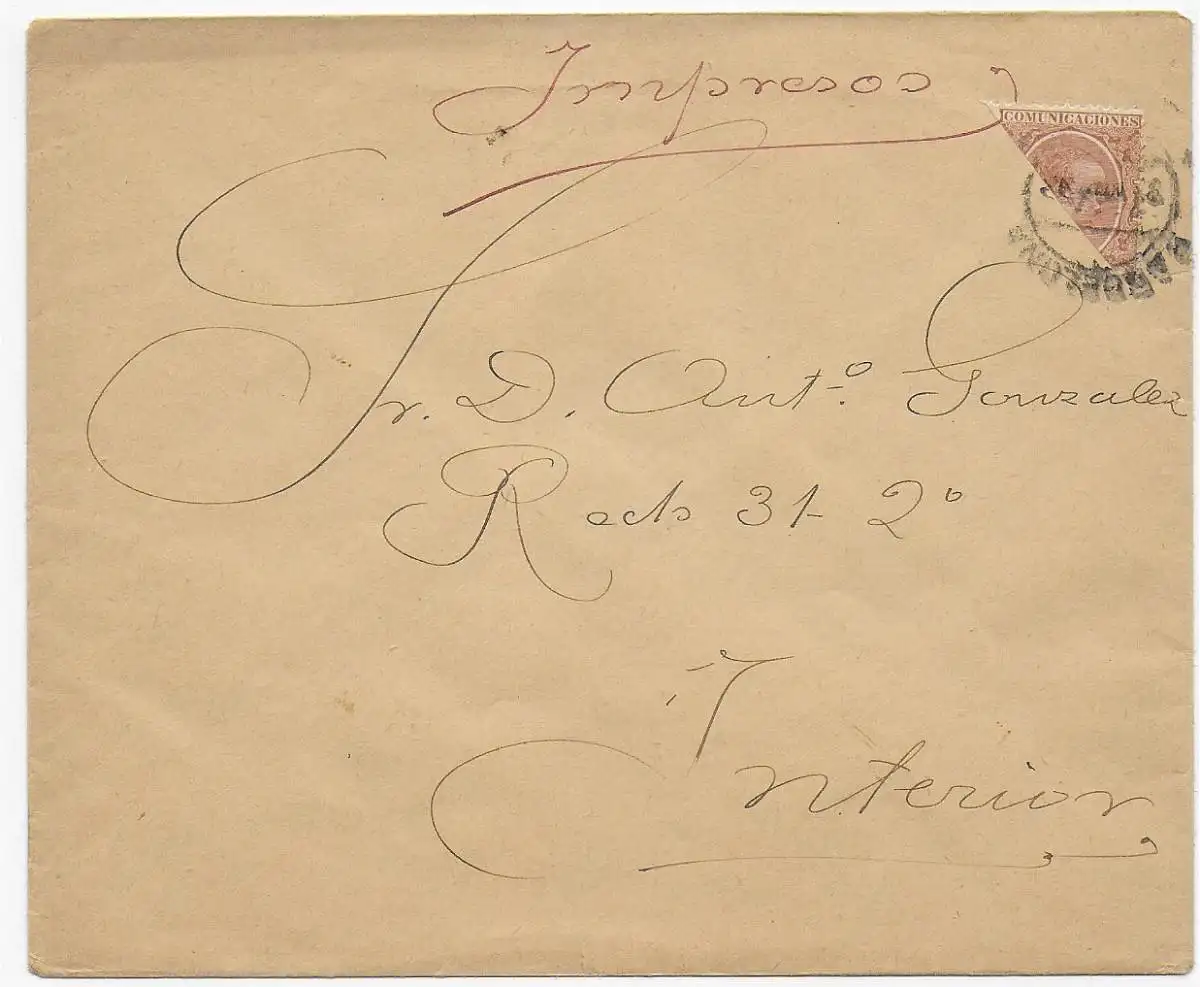 Impresos
COMUNICACIONES
Sr. D. Ant.º Gonzalez
31 2º
Interior